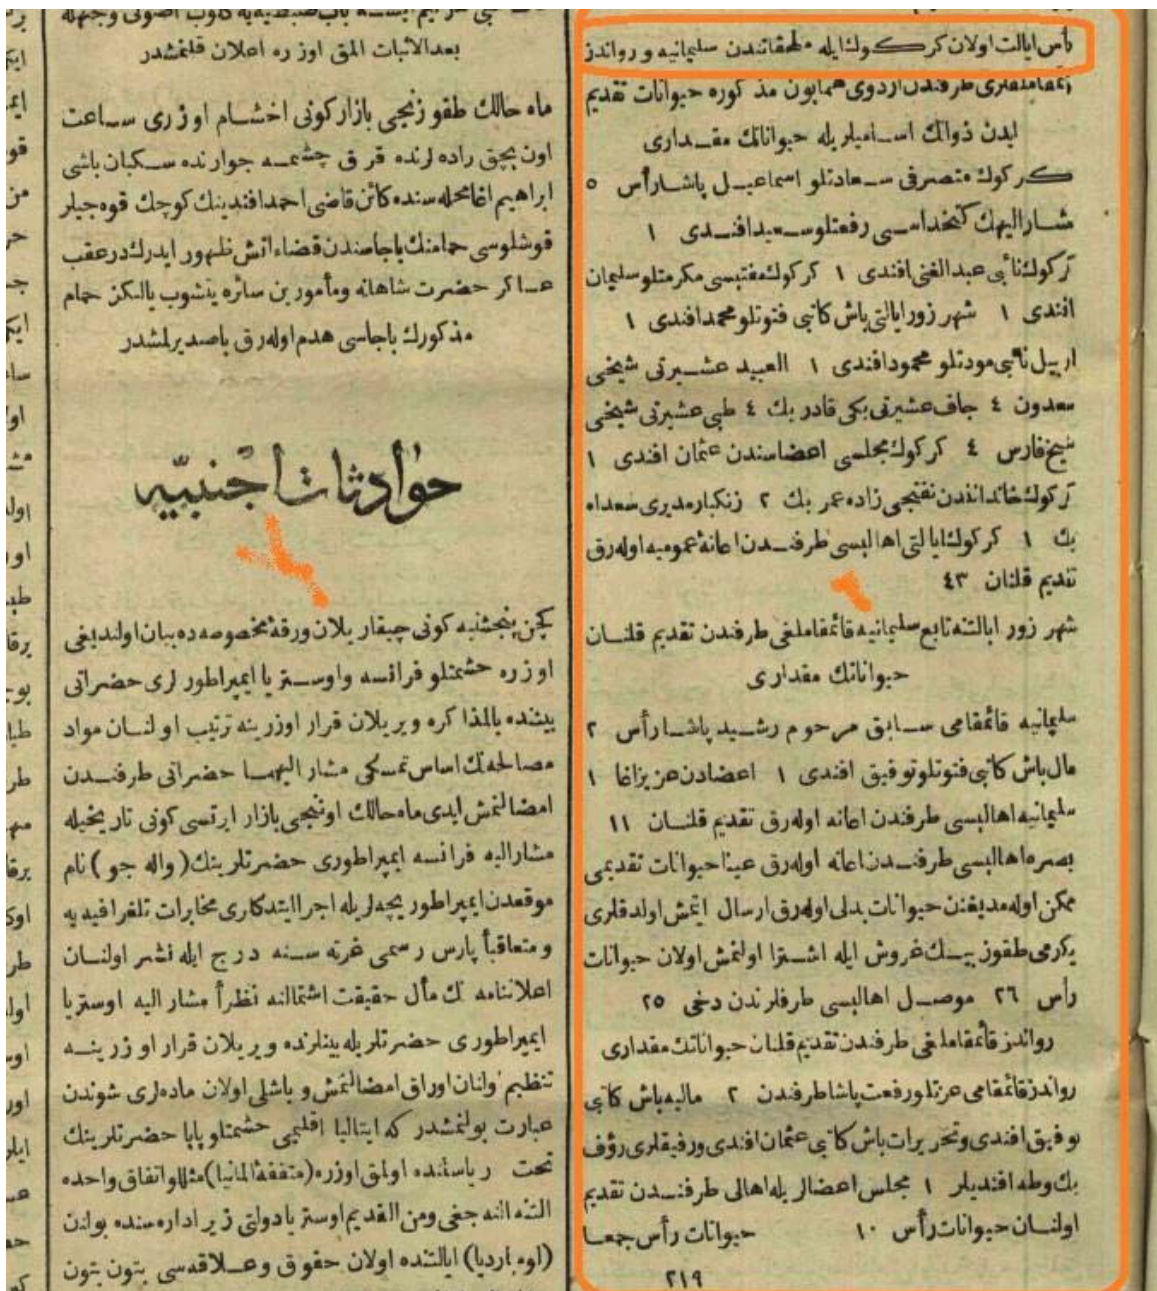 رأس ایالت اولان كركوك ایله ملحقاتندن سلیمانیه و رواندز
قائمقاملقلری طرفندن اردوی همایون مذكوره حیوانات تقدیم
ایدن ذواتك اسامیلریله حیواناتك مقداری
كركوك متصرفی سعادتلو اسماعیل پاشا رأس ٥
مشار الیهك كتخداسی رفعتلو سعید افندی ١
كركوك نائبی عبد الغنی افندی ١ كركوك مفتیسی مكرمتلو سلیمان
افندی ١ شهر زور ایالتی باش كاتبی فتوتلو محمد افندی ١
اربیل نائبی مودتلو محمود افندی ١ العبید عشیرتی شیخی
سعدون ٤ جاف عشیرتی بكی قادر بك ٤ طی عشیرتی شیخی
شیخ فارس ٤ كركوك مجلسی اعضاسندن عثمان افندی ١
كركوك خاندانندن نفتجی زاده عمر بك ٢ زنكبار مدیری سعداه
بك ١ كركوك ایالتی اهالیسی طرفندن اعانهٔ عمومیه اوله رق
تقدیم قلنان ٤٣
شهر زور ایالتنه تابع سلیمانیه قائمقاملغی طرفندن تقدیم قلنان
حیواناتك مقداری
سلیمانیه قائمقامی سابق مرحوم رشید پاشا رأس ٢
مال باش كاتبی فتوتلو توفیق افندی ١ اعضادن عزیز اغا ١
سلیمانیه اهالیسی طرفندن اعانه اوله رق تقدیم قلنان ١١
بصره اهالیسی طرفندن اعانه اوله رق عینا حیوانات تقدیمی
ممكن اوله مدیغندن حیوانات بدلی اوله رق ارسال ایتمش اولدقلری
یكرمی طقوز بیك غروش ایله اشترا اولنمش اولان حیوانات
رأس ٢٦ موصل اهالیسی طرفلرندن دخی ٢٥
رواندز قائمقاملغی طرفندن تقدیم قلنان حیواناتك مقداری
رواندز قائمقامی عزتلو رفعت پاشا طرفندن ٢ مالیه باش كاتبی
توفیق افندی و تحریرات باش كاتبی عثمان افندی و رفیقلری رؤف
بك و طه افندیلر ١ مجلس اعضالریله اهالی طرفندن تقدیم
اولنان حیوانات رأس ١٠ حیوانات رأس جمعا
٢١٩
بعد الاثبات المق اوزره اعلان قلنمشدر
ماه حالك طقوزنجی بازار كونی اخشام اوزری ساعت
اون بچق راده لرنده قرق چشمه جوارنده سكبان باشی
ابراهیم اغا محله سنده كائن قاضی احمد افندینك كوچك قوه جیلر
قوشلوسی حمامنك باجاصندن قضاء اتش ظهور ایدرك در عقب
عساكر حضرت شاهانه و مأمورین سائره یتشوب یالكز حمام
مذكورك باجاسی هدم اوله رق باصدیرلمشدر
حوادثات اجنبیه
كچن پنجشنبه كونی چیقاریلان ورقهٔ مخصوصه ده بیان اولندیغی
اوزره حشمتلو فرانسه و اوستریا ایمپراطورلری حضراتی
بیننده بالمذاكره ویریلان قرار اوزرینه ترتیب اولنان مواد
مصالحه نك اساس تمسكی مشار الیهما حضراتی طرفندن
امضالنمش ایدی ماه حالك اونبجی بازار ایرتسی كونی تاریخیله
مشار الیه فرانسه ایمپراطوری حضرتلرینك (واله جو) نام
موقعدن ایمپراطوریچه لریله اجرا ایتدكاری مخابرات تلغرافیه یه
و متعاقباً پارس رسمی غزته سنه درج ایله نشر اولنان
اعلاننامه نك مآل حقیقت اشتمالنه نظراً مشار الیه اوستریا
ایمپراطوری حضرتلریله بینلرنده ویریلان قرار اوزرینه
تنظیم اولنان اوراق امضالنمش و باشلی اولان ماده لری شوندن
عبارت بولنمشدر كه ایتالیا اقلیمی حشمتلو پاپا حضرتلرینك
تحت ریاستنده اولمق اوزره (متفقهٔ المانیا) مثللو اتفاق واحده
التنه النه جغی و من القدیم اوستریا دولتی زیر اداره سنده بولنن
(لومباردیا) ایالتنده اولان حقوق و علاقه سی بتون بتون